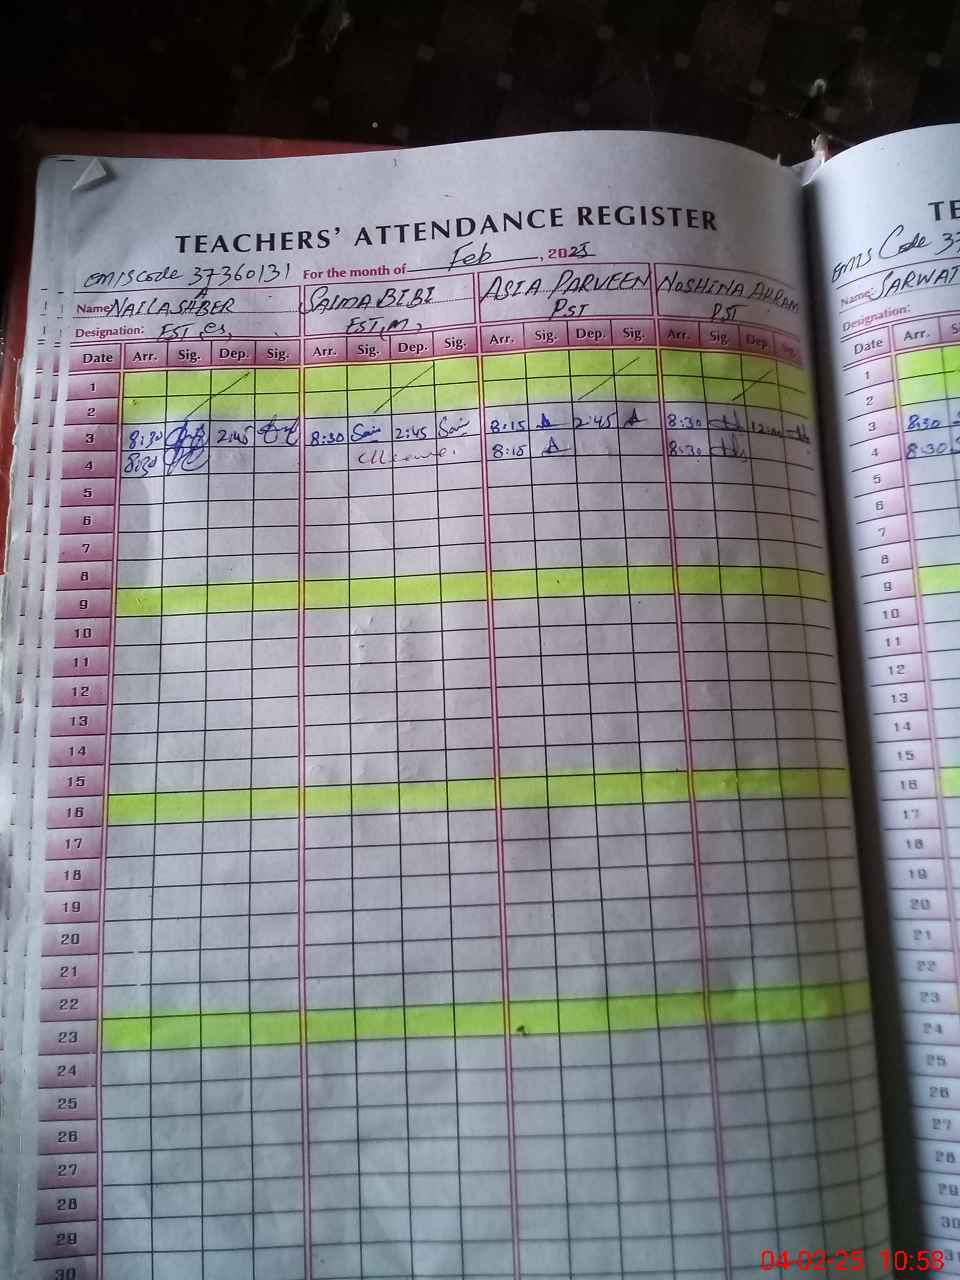 TEACHERS' ATTENDANCE REGISTER
EMIS Code 37360131 For the month of Feb, 2025
Name: NAILA SABER SALMA BIBI ASIA PARVEEN NOSHINA AKRAM
Designation: PST PST
Date Arr. Sig. Dep. Sig. Arr. Sig. Dep. Sig. Arr. Sig. Dep. Sig. Arr. Sig. Dep. Sig.
1
2
3 8:30 2:45 8:30 2:45 8:15 2:45 8:30
4 8:30 8:15 8:30
5
6
7
8
9
10
11
12
13
14
15
16
17
18
19
20
21
22
23
24
25
26
27
28
29
30
TE
EMIS Code 37
Name: SARWAT
Designation:
Date Arr.
1
2
3 8:30
4 8:30
5
6
7
8
9
10
11
12
13
14
15
16
17
18
19
20
21
22
23
24
25
26
27
28
29
30
04-02-25 10:58